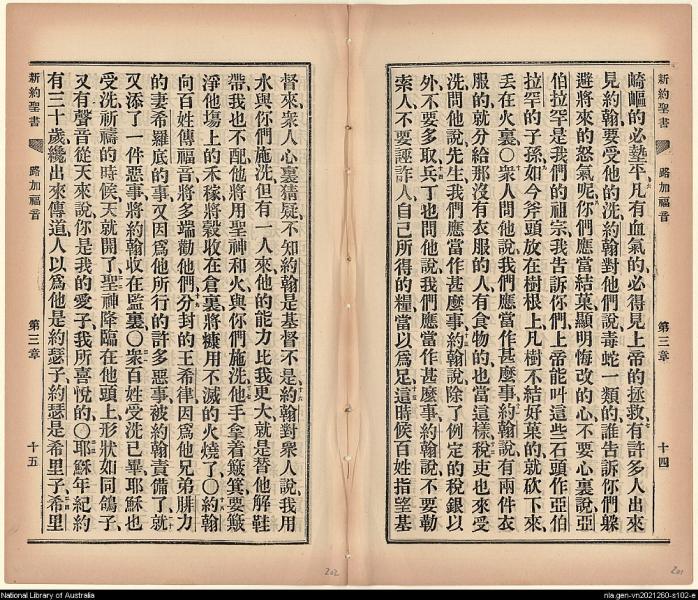 新約聖書 路加福音 第三章 十四
崎嶇的必墊平、凡有血氣的、必得見上帝的拯救、有許多人出來
見約翰、要受他的洗、約翰對他們說、毒蛇一類的、誰告訴你們躲
避將來的怒氣呢、你們應當結菓、顯明悔改的心、不要心裏說、亞
伯拉罕是我們的祖宗、我告訴你們、上帝能叫這些石頭作亞伯
拉罕的子孫、如今斧頭放在樹根上、凡樹不結好菓的、就砍下來、
丟在火裏○衆人問他說、我們應當作甚麽事、約翰說、有兩件衣
服的、就分給那沒有衣服的人、有食物的、也當這樣、稅吏也來受
洗、問他說、先生、我們應當作甚麽事、約翰說、除了例定的稅銀以
外、不要多取、兵丁也問他說、我們應當作甚麽事、約翰說、不要勒
索人、不要誣詐人、自己所得的糧、當以爲足、這時候百姓指望基
督來、衆人心裏猜疑、不知約翰是基督不是、約翰對衆人說、我用
水與你們施洗、但有一人來、他的能力比我更大、就是替他解鞋
帶、我也不配、他將用聖神和火、與你們施洗、他手拿着簸箕、要簸
淨他場上的禾稼、將穀收在倉裏、將糠用不滅的火燒了、○約翰
向百姓傳福音、將多端勸他們、分封的王希律、因爲他兄弟腓力
的妻希羅底的事、又因爲他所行的許多惡事、被約翰責備了、就
又添了一件惡事、將約翰收在監裏○衆百姓受洗已畢、耶穌也
受洗、祈禱的時候、天就開了、聖神降臨在他頭上、形狀如同鴿子、
又有聲音從天來說、你是我的愛子、我所喜悅的、○耶穌年紀約
有三十歲、纔出來傳道、人以爲他是約瑟子、約瑟是希里子、希里
新約聖書 路加福音 第三章 十五
202
201
National Library of Australia
nla.gen-vn2021260-s102-e